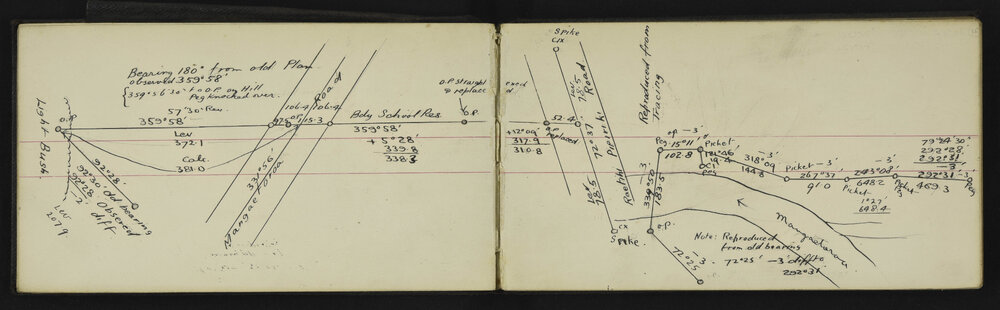 Bearing 180° from old Plan
observed 359°58'
359°56'30" to O.P. on Hill
Peg knocked over.
57'30" Rev.
359°58'
Lev
372.1
Calc.
381.0
Light Bush
O.P.
92°28'
92°30' old bearing
92°28' Observed
2' diff.
Lev
2079
106.4
106.4
115.3
Road
331°56'
Mangaetoroa
Bdy School Res
359°58'
+ 5°28'
339.8
338.3
O.P. straight
& replace
O.P.
+12°09'
317.9
310.8
52.4
O.P.
replaced
Spike
CIX
Lev
78.5
Road
72°37'
Pipiriki
Raetihi
Lev
78.5
CX
Spike.
Reproduced from
Tracing
339°50'
-3'
183.5
O.P.
O.P. -3'
Peg 15°11'
102.8
Picket
19.4
Peg
-3'
318°09'
144.8
Picket -3'
267°37'
91.0
-3'
243°08'
648.2
Picket
1°27'
648.4
79°24'30"
292°28'
292°31'
-3'
292°31' -3'
469.3
Peg
-3'
72°25'
Note: Reproduced
from old bearing
72°25' -3' diff to
292°31'